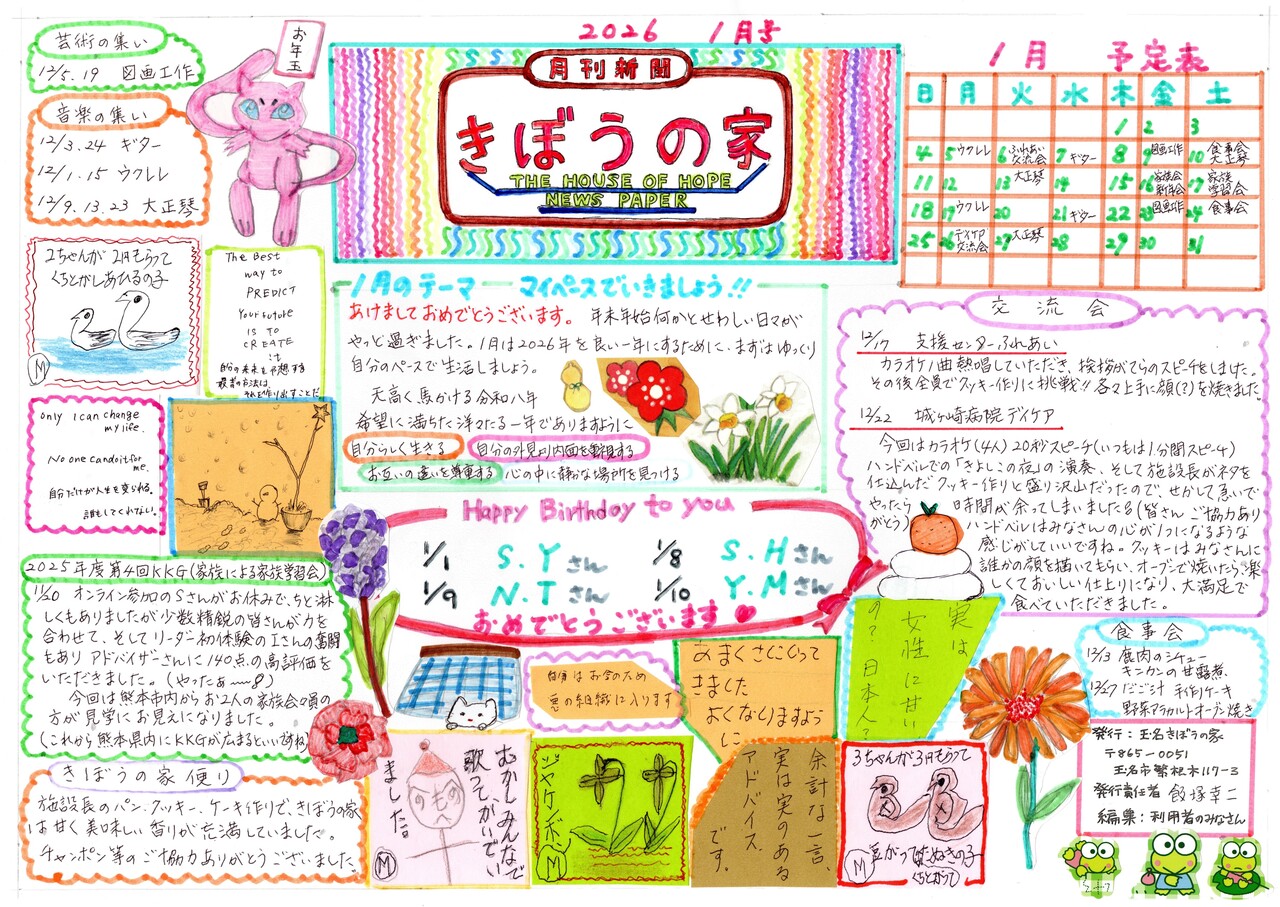 2026 1月号
月刊新聞
きぼうの家
THE HOUSE OF HOPE
NEWS PAPER
芸術の集い
12/5. 19 図画工作
音楽の集い
12/3. 24 ギター
12/1. 15 ウクレレ
12/9. 13. 23 大正琴
お年玉
1月 予定表
日 月 火 水 木 金 土
1 2 3
4 5 ウクレレ 6 ふれあい交流会 7 ギター 8 9 図画工作 10 食事会 大正琴
11 12 13 大正琴 14 15 16 家族会 新年会 17 家族学習会
18 19 ウクレレ 20 21 ギター 22 23 図画工作 24 食事会
25 26 デイケア交流会 27 大正琴 28 29 30 31
2ちゃんが2円もらって
くちとがしあひるの子
M
The Best
way to
PREDICT
Your future
IS TO
CREATE
it
自分の未来を予想する
最善の方法は、
それを作り出すことだ
only I can change
my life.
No one can do it for
me.
自分だけが人生を変られる。
誰もしてくれない。
1月のテーマ マイペースでいきましょう!!
あけましておめでとうございます。 年末年始何かとせわしい日々が
やっと過ぎました。1月は2026年を良い一年にするために、まずはゆっくり
自分のペースで生活しましょう。
天高く馬かける令和八年
希望に満ちた洋々たる一年でありますように
自分らしく生きる 自分の外見より内面を重視する
お互いの違いを尊重する 心の中に静かな場所を見つける
Happy Birthday to you
1/1 S.Yさん 1/8 S.Hさん
1/9 N.Tさん 1/10 Y.Mさん
おめでとうございます
交流会
12/17 支援センターふれあい
カラオケ1曲熱唱していただき、挨拶がてらのスピーチをしました。
その後全員でクッキー作りに挑戦!! 各々上手に顔(?)を焼きました
12/22 城ヶ崎病院デイケア
今回はカラオケ(4人)20秒スピーチ(いつもは1分間スピーチ)
ハンドベルでの「きよしこの夜」の演奏、そして施設長がネタを
仕込んだクッキー作りと盛り沢山だったので、せかして急いで
やったら 時間が余ってしまいました(皆さんご協力あり
がとう) ハンドベルはみなさんの心が1つになるような
感じがしていいですね。クッキーはみなさんに
誰かの顔を描いてもらい、オーブンで焼いたら楽
しくておいしい仕上りになり、大満足で
食べていただきました。
2025年度第4回KKG(家族による家族学習会)
オンライン参加のSさんがお休みで、ちと淋
しくもありましたが少数精鋭の皆さんが力を
合わせて、そしてリーダー初体験のIさんの奮闘
もあり アドバイザーさんに140点の高評価を
いただきました。(やったぁ〜!)
今回は熊本市内からお2人の家族会々員の
方が見学にお見えになりました。
(これから熊本県内にKKGが広まるといいですね)
きぼうの家便り
施設長のパン、クッキー、ケーキ作りで、きぼうの家
は甘く美味しい香りが充満していました。
チャンポン等のご協力ありがとうございました
食事会
12/13 鹿肉のシチュー
キンカンの甘露煮
12/27 だご汁 手作りケーキ
野菜アラカルトオーブン焼き
実は
女性に甘い
の?日本人?
お金のため
悪の組織に入ります
おまくさにいって
きました
よくなりますよう
に
むかしみんなで
歌ってかいでい
ました。
M
ジャンケンポン
M
余計な一言、
実は実のある
アドバイス
です。
3ちゃんが3円もらって
豆がって
たぬきの子
くちとがって
M
発行:玉名きぼうの家
〒865-0051
玉名市繁根木117-3
発行責任者 飯塚幸二
編集:利用者のみなさん